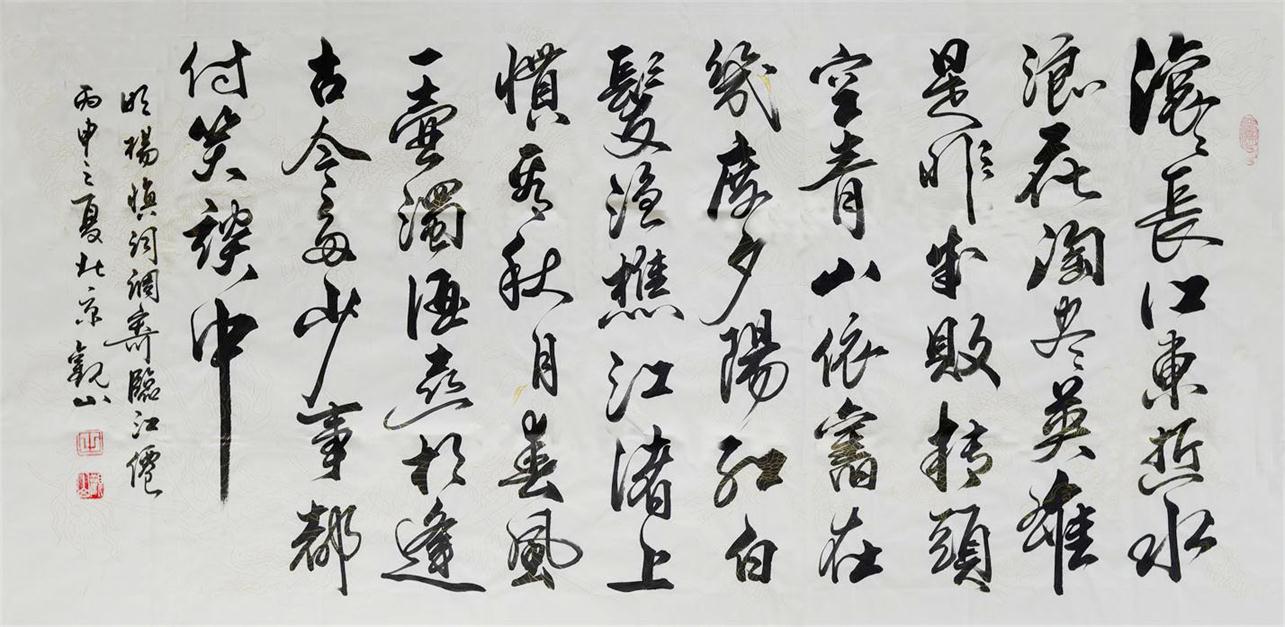 滾〻長江東逝水
浪花淘尽英雄
是非成敗轉頭
空青山依舊在
幾度夕陽紅白
髮漁樵江渚上
慣看秋月春風
一壺濁酒喜相逢
古今多少事都
付笑談中
明楊慎词調寄臨江僊
丙申之夏北京觀山